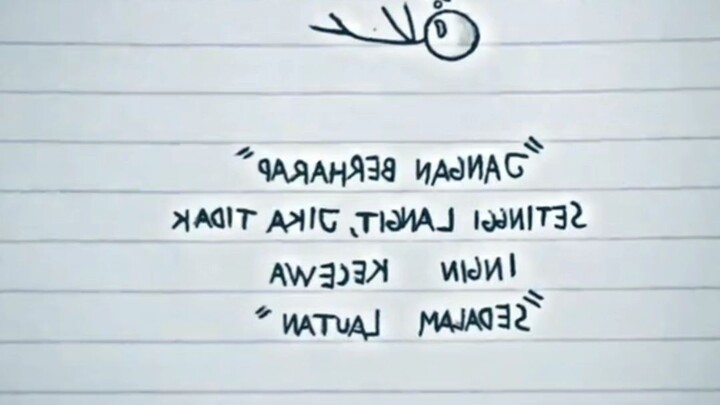 "JANGAN BERHARAP"
SETINGGI LANGIT, JIKA TIDAK
INGIN KECEWA
"SEDALAM LAUTAN"